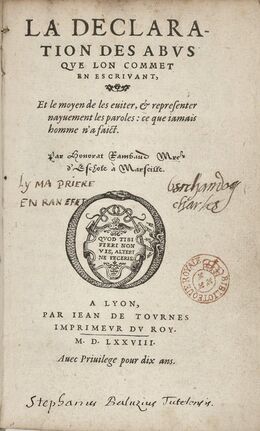 LA DECLARA-
TION DES ABVS
QVE LON COMMET
EN ESCRIVANT,
Et le moyen de les euiter, & representer
nayuement les paroles: ce que iamais
homme n'a faict.
Par Honorat Rambaud
d'Eschole à Marseille.
LY MA PRIERE
EN RAN EFFET
charles
QVOD TIBI
FIERI NON
VIS, ALTERI
NE FECERIS.
A LYON,
PAR IEAN DE TOVRNES
IMPRIMEVR DV ROY.
M. D. LXXVIII.
Auec Priuilege pour dix ans.
Stephanus Baluzius Tutelensis.